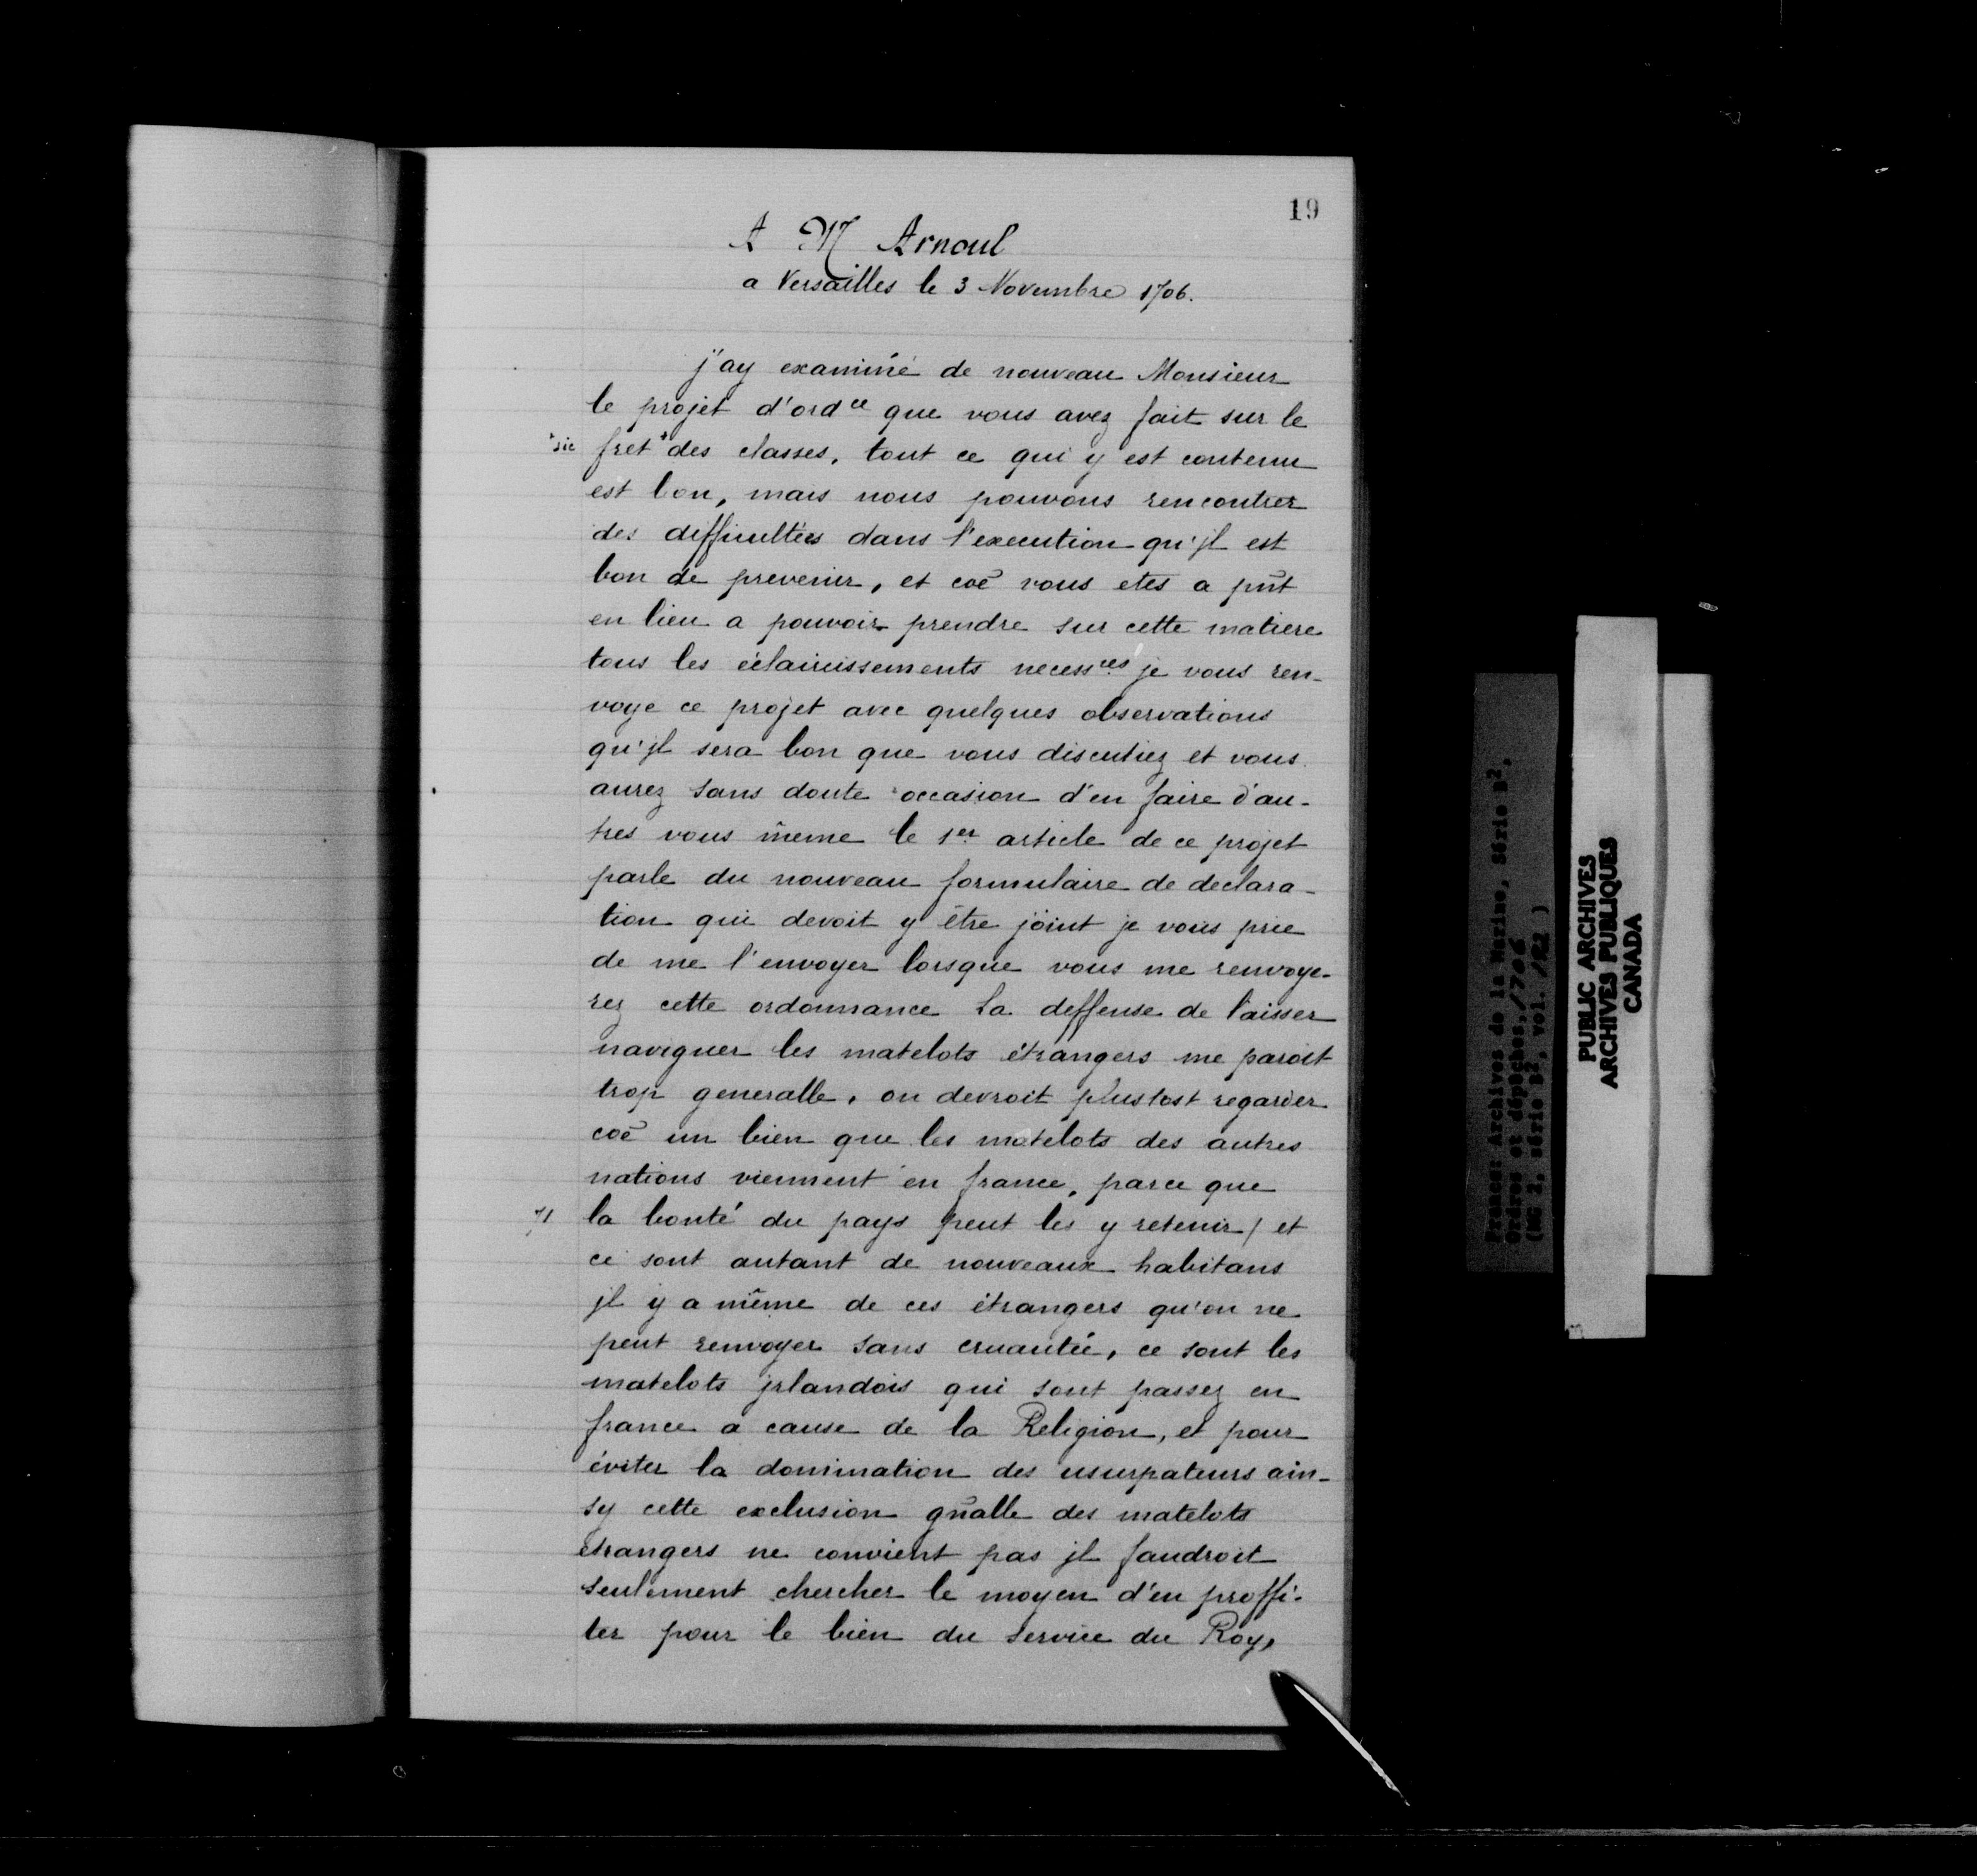 19
A M Arnoul
a Versailles le 3 Novembre 1706.
j'ay examiné de nouveau Monsieur
le projet d'ordce que vous avez fait sur le
+sic fret+ des classes, tout ce qui y est contenu
est bon, mais nous pouvons rencontrer
des difficultées dans l'execution qu'jl est
bon de prevenir, et coē vous etes a pñt
en lieu a pouvoir prendre sur cette matiere
tous les éclaircissements necessres je vous ren-
voye ce projet avec quelques observations
qu'jl sera bon que vous discutiez et vous
aurez sans doute occasion d'en faire d'au-
tres vous même le 1er article de ce projet
parle du nouveau formulaire de declara-
tion qui devoit y être joint je vous prie
de me l'envoyer lorsque vous me renvoye-
rez cette ordonnance La deffense de laisser
naviguer les matelots étrangers me paroit
trop generalle, on devroit plustost regarder
coē un bien que les matelots des autres
nations viennent en france, parce que
la bonté du pays peut les y retenir / et
ce sont autant de nouveaux habitans
jl y a même de ces étrangers qu'on ne
peut renvoyer sans cruautée, ce sont les
matelots jrlandois qui sont passez en
france a cause de la Religion, et pour
éviter la domination des usurpateurs ain-
sy cette exclusion gñalle des matelots
étrangers ne convient pas jl faudroit
seulement chercher le moyen d'en proffi-
ter pour le bien du service du Roy,
France: Archives de la Marine, Série B2,
Ordres et dépêches, 1706
(MG 2, série B2, vol. 192 )
PUBLIC ARCHIVES
ARCHIVES PUBLIQUES
CANADA